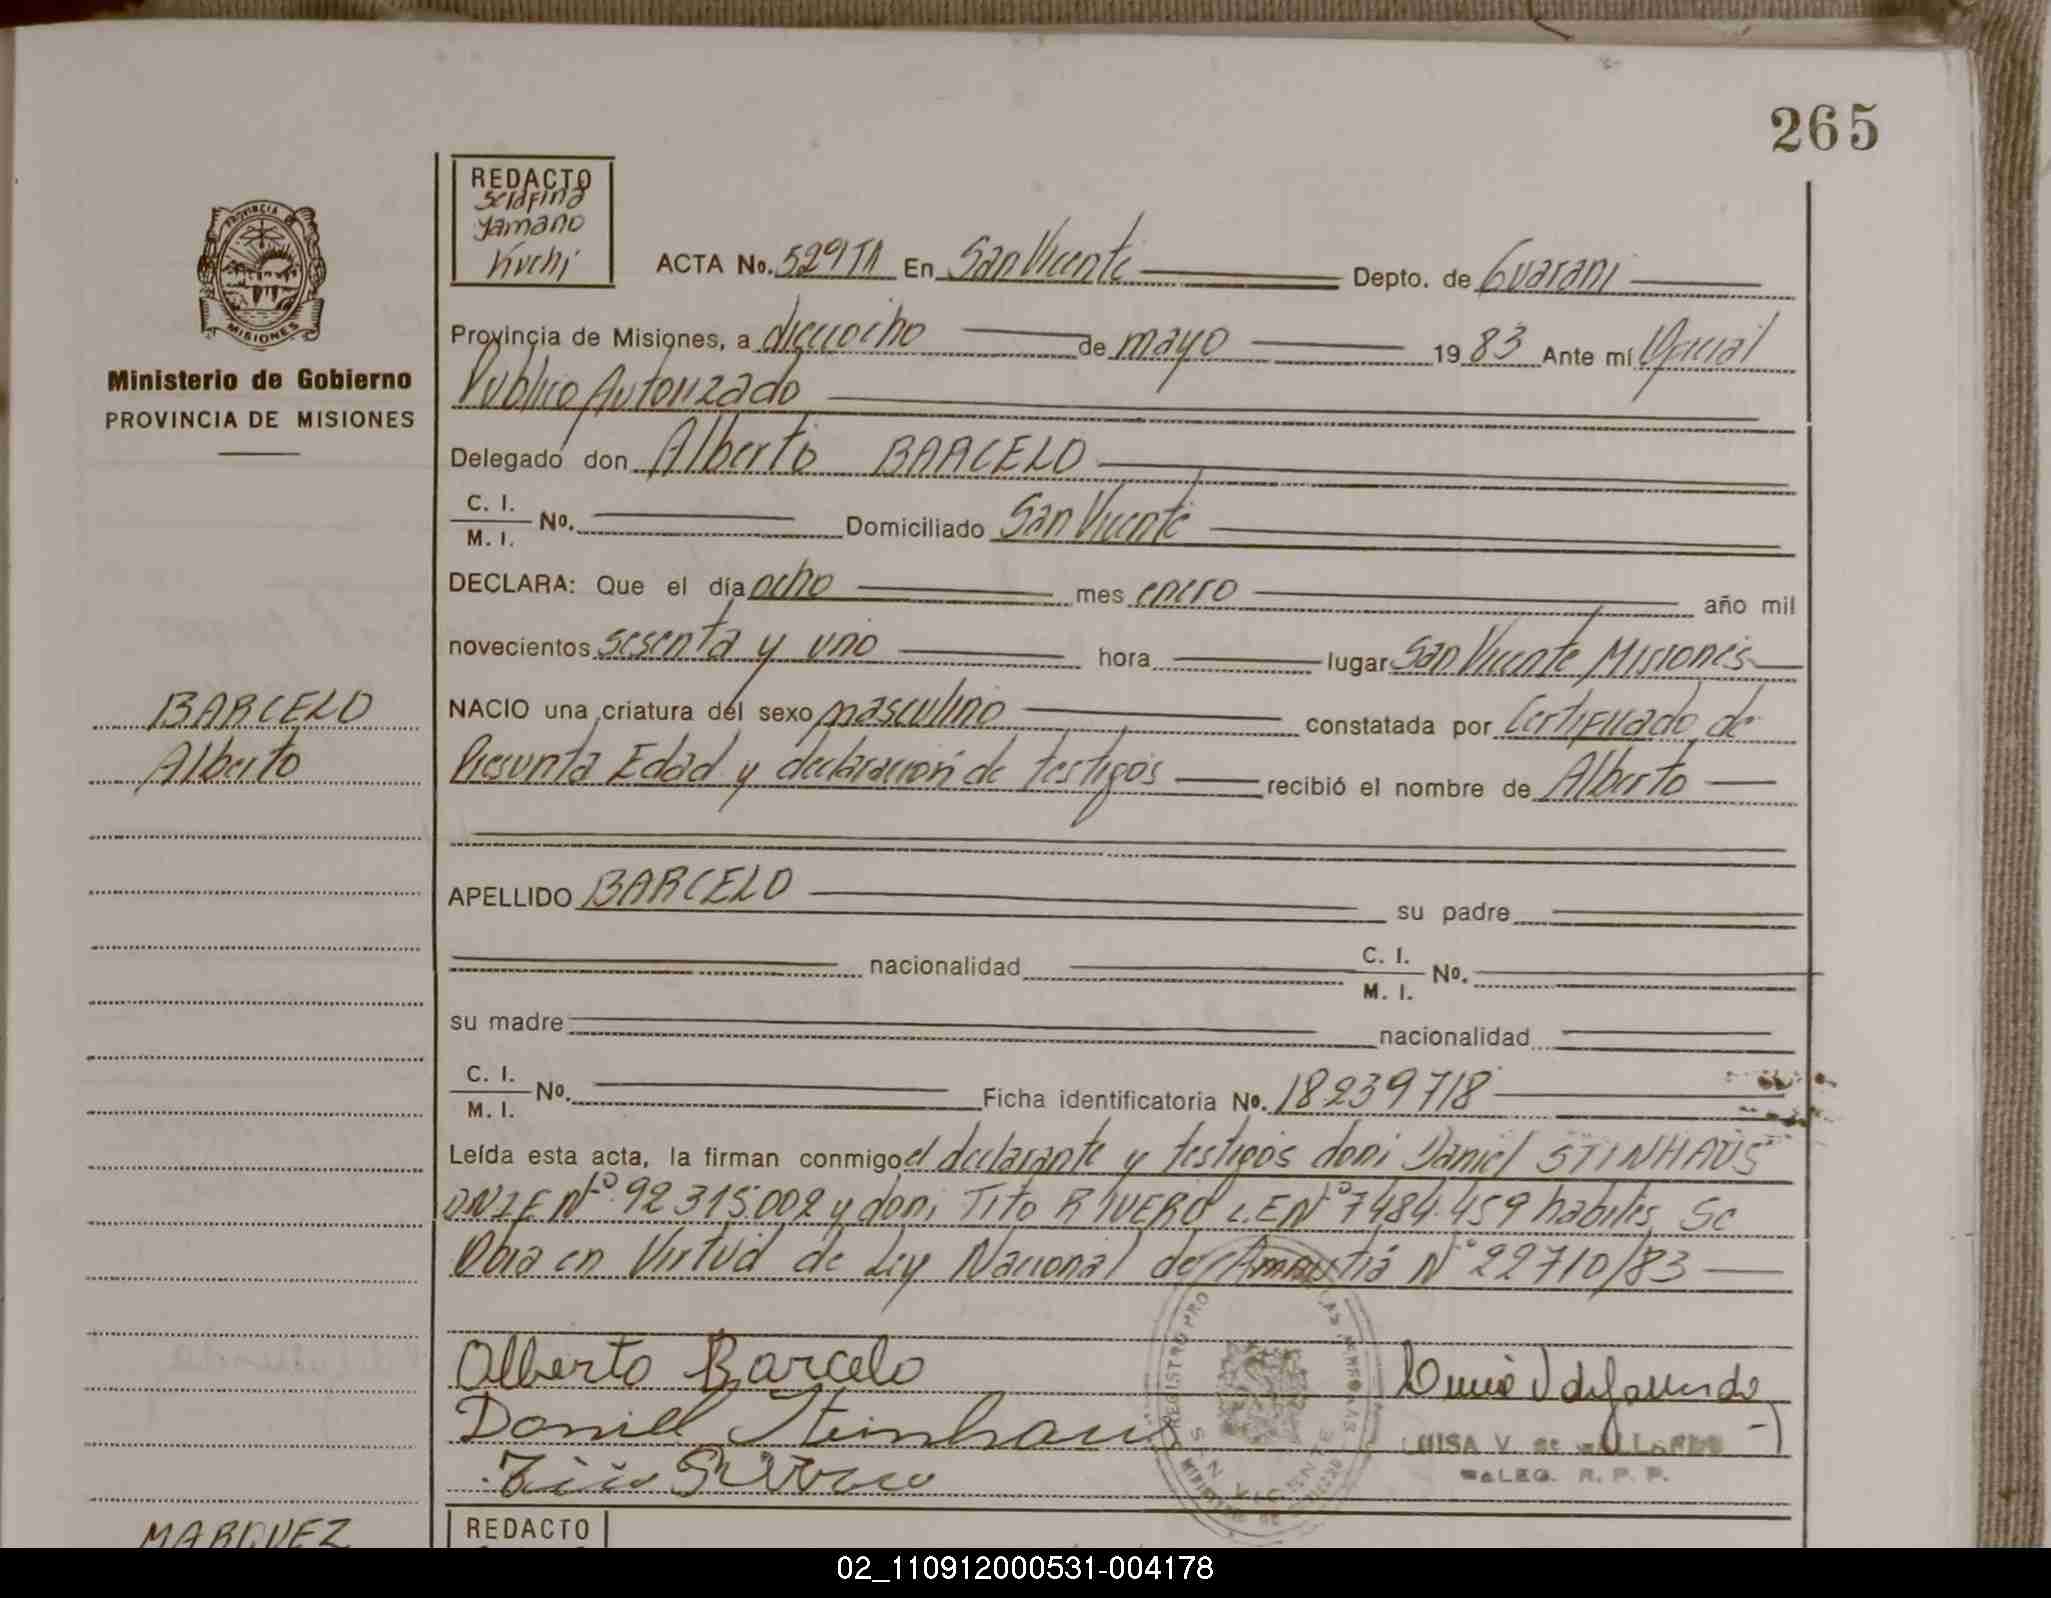 265
REDACTO
Serafina
Yamano
Kuchi
ACTA No. 529 TA En San Vicente Depto. de Guarani
PROVINCIA DE
MISIONES
Ministerio de Gobierno
PROVINCIA DE MISIONES
Provincia de Misiones, a dieciocho de mayo 1983 Ante mí Oficial
Publico Autorizado
Delegado don Alberto BARCELO
C. I.
M. I. No. Domiciliado San Vicente
DECLARA: Que el día ocho mes enero año mil
novecientos sesenta y uno hora lugar San Vicente Misiones
BARCELO
Alberto
NACIO una criatura del sexo masculino constatada por Certificado de
Presunta Edad y declaracion de testigos recibió el nombre de Alberto
APELLIDO BARCELO su padre
nacionalidad C. I.
M. I. No.
su madre nacionalidad
C. I.
M. I. No. Ficha identificatoria No. 18239718
Leída esta acta, la firman conmigo el declarante y testigos don: Daniel STINHAUS
DNI.E Nº 92.315.002 y don: Tito RIVERO L.E Nº 7484.459 habiles. Se
Obra en Virtud de Ley Nacional de Amnistiá Nº 22710/83
Alberto Barcelo
Daniel Steinhaus
LUISA V. de GALLARDO
DELEG. R. P. P.
SAN VICENTE
MARQUEZ
REDACTO
02_110912000531-004178